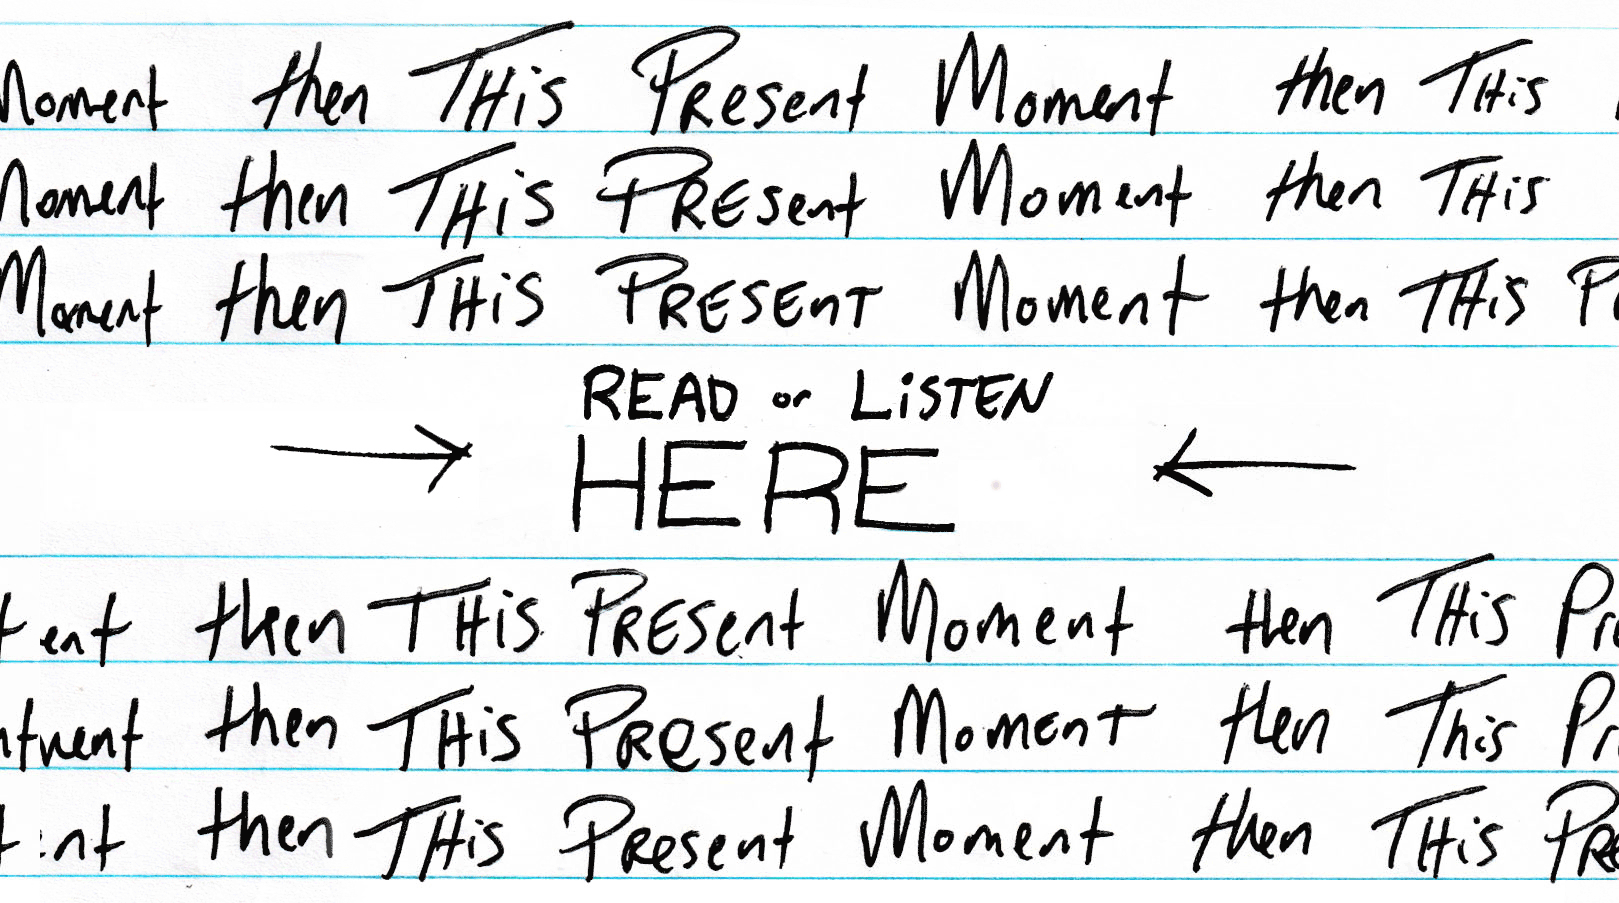 Moment then THiS PResent Moment then THiS
Moment then THiS PRESent Moment then THiS
Moment then THiS PRESEnT Moment then THiS
READ or LiSTEN
HERE
then THiS PRESent Moment then THiS
then THiS PResent MomenT then This
then THiS PResent Moment then THiS